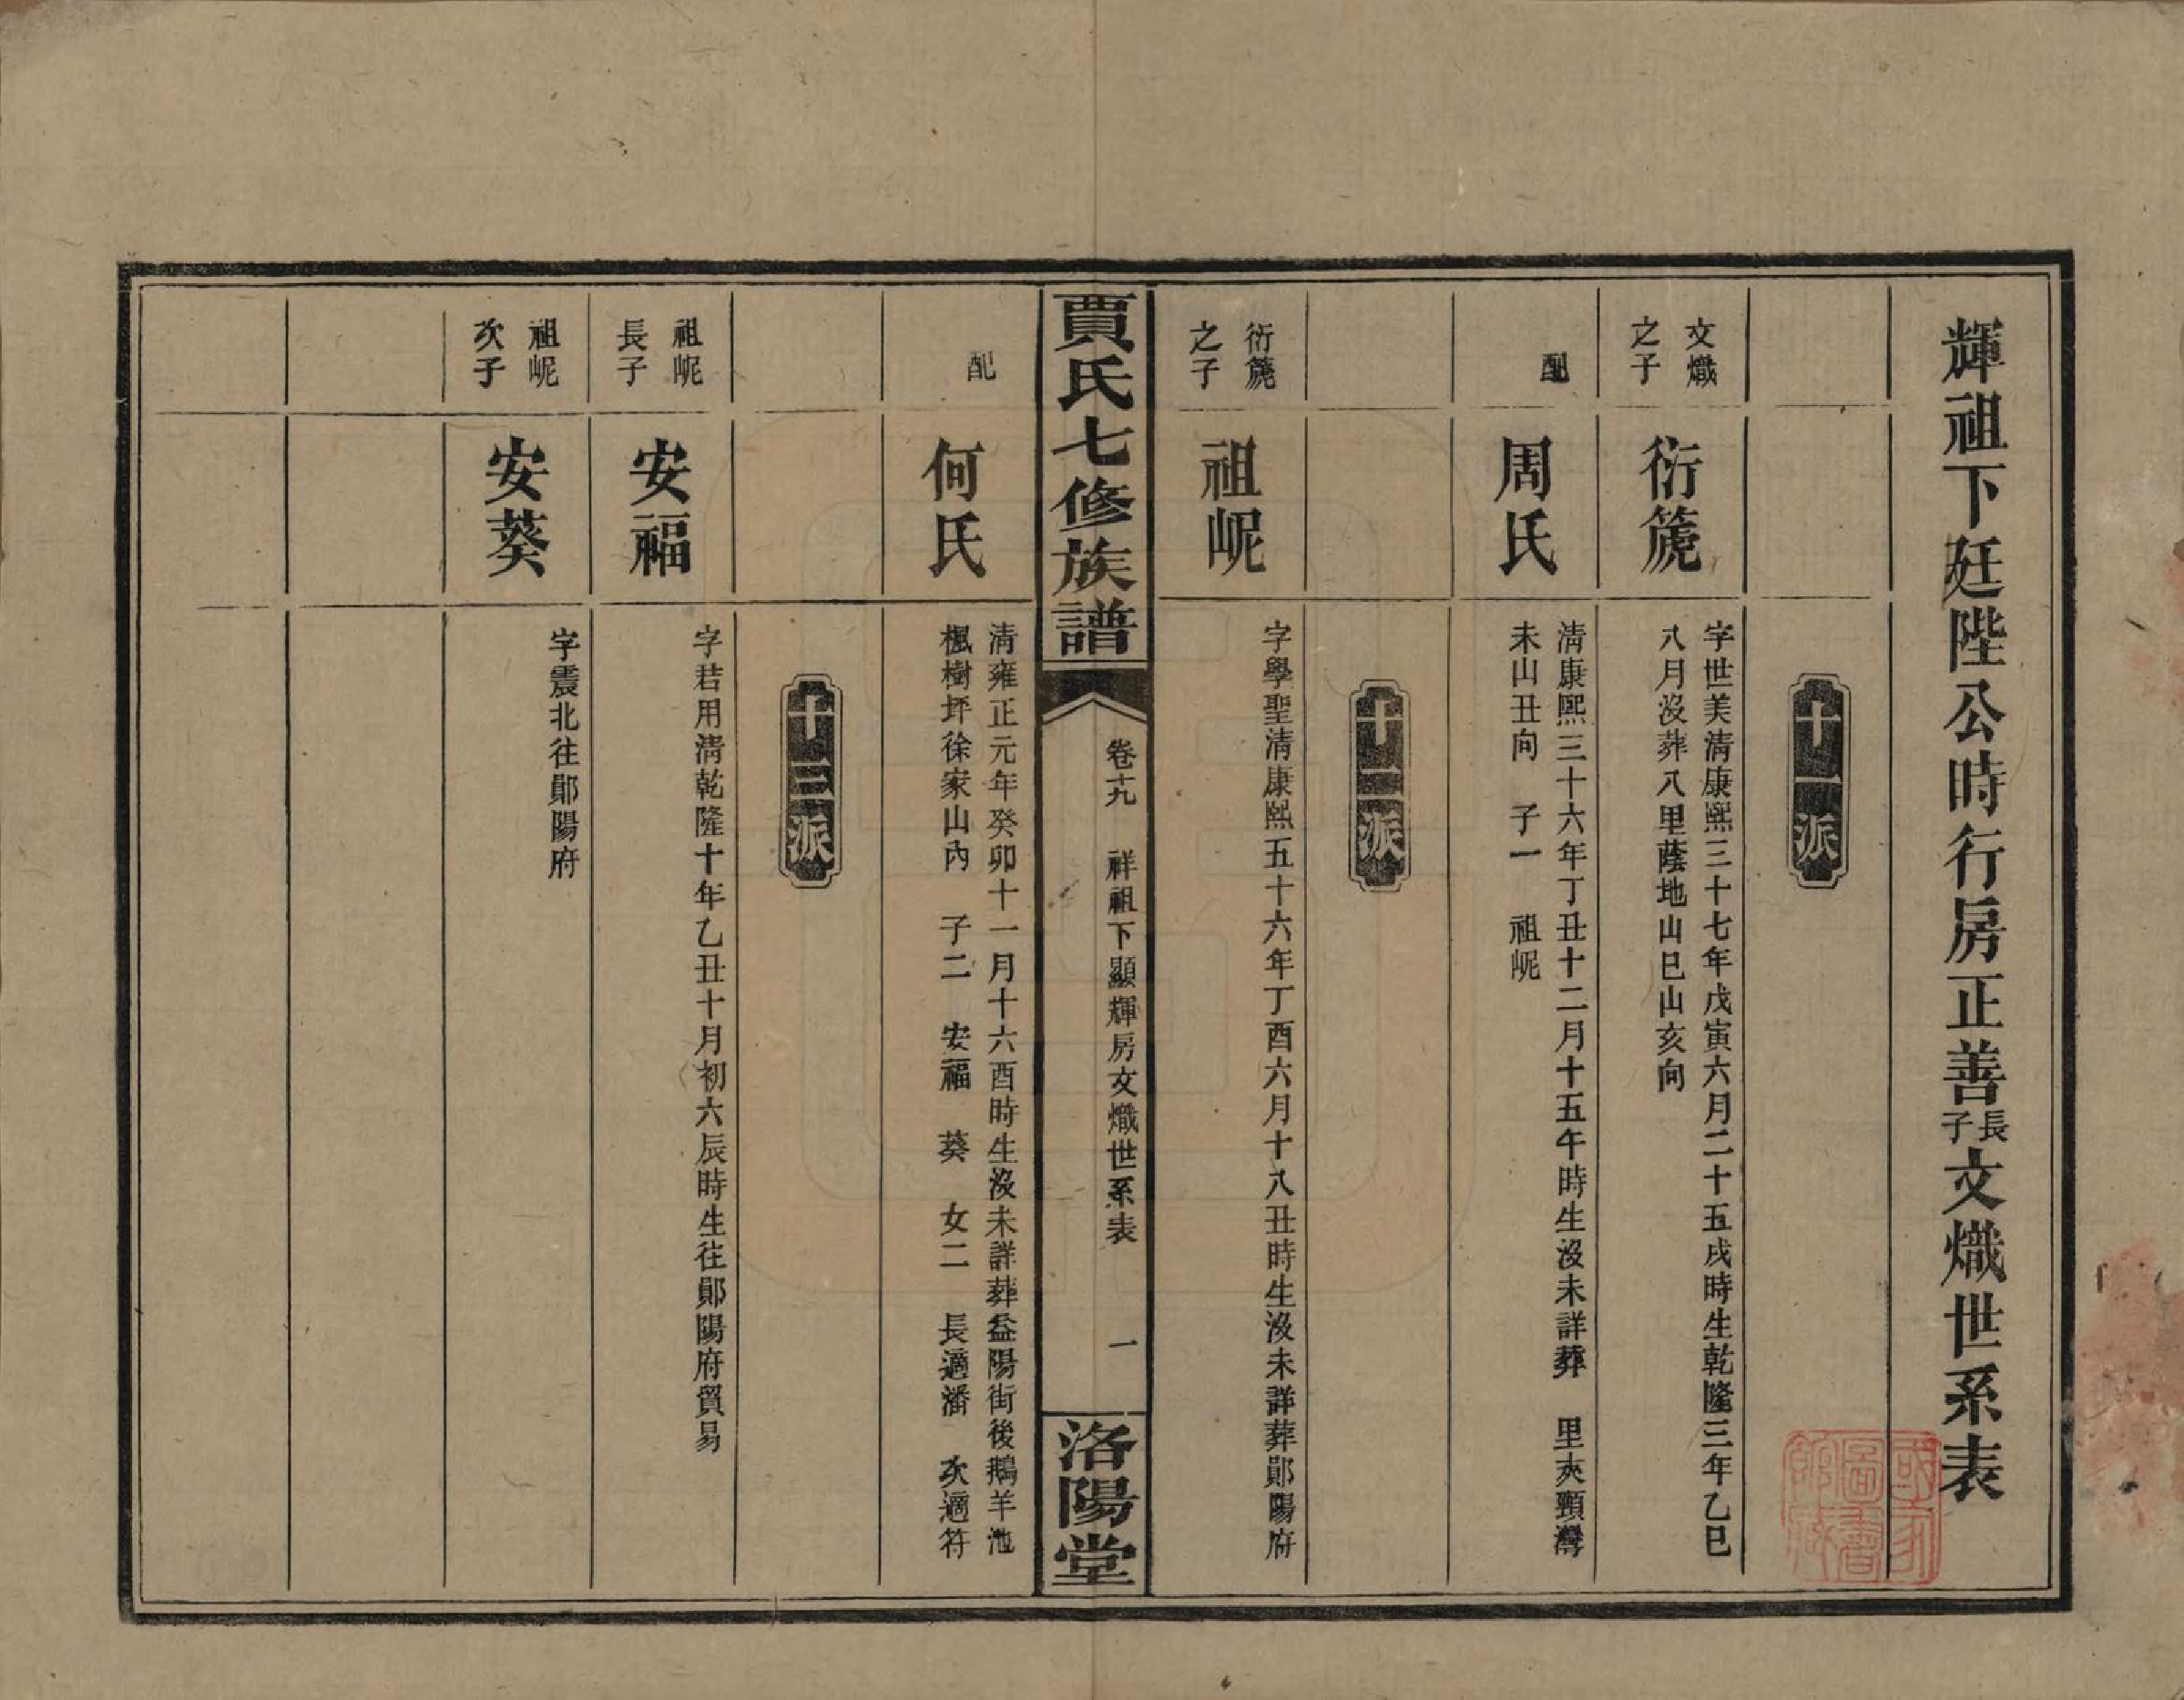 輝祖下廷陛公時行房正善長子文熾世系表
十一派
文熾之子
衍篪
字世美清康熙三十七年戊寅六月二十五戌時生乾隆三年乙巳
八月沒葬八里蔭地山巳山亥向
配
周氏
清康熙三十六年丁丑十二月十五午時生沒未詳葬 里夾頸灣
未山丑向 子一 祖岮
十二派
衍篪之子
祖岮
字學聖清康熙五十六年丁酉六月十八丑時生沒未詳葬鄖陽府
賈氏七修族譜
卷十九 祥祖下顯輝房文熾世系表 一
洛陽堂
配
何氏
清雍正元年癸卯十一月十六酉時生沒未詳葬益陽街後鵝羊池
楓樹坪徐家山內 子二 安福 葵 女二 長適潘 次適符
十三派
祖岮長子
安福
字若用清乾隆十年乙丑十月初六辰時生往鄖陽府貿易
祖岮次子
安葵
字震北往鄖陽府
國家圖書館藏